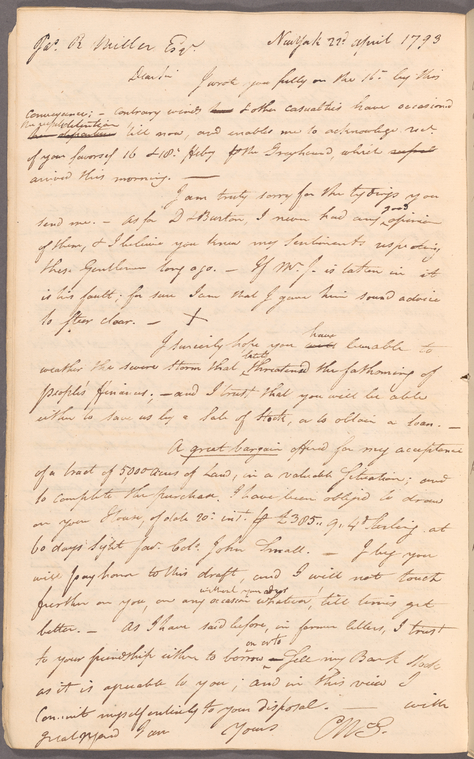 Jas. R Miller Esqr New York 22d April 1793
Dear Sir I wrote you fully on the 16th by this
conveyance; – contrary winds & other casualties have occasiond
the vessels detention
till now, and enables me to acknowlege rect.
of your favors of 16 & 18th Feby the Greyhound, which
arrived this morning. —
I am truly sorry for the tydings you
send me. – As for D & Burton, I never had any good opinion
of them, & I believe you knew my Sentiments respecting
these Gentlemen long ago. – If Mr. J. is taken in it
is his fault; for sure I am that I gave him sound advice
to steer clear. – X
I sincerely hope you have been able to
weather the severe storm that lately threatened the fathoming of
people's finances; – and I trust that you will be able
either to save us by a Sale of Stock, or to obtain a loan. –
A great bargain offered for my acceptance
of a tract of 5000 Acres of Land, in a valuable Situation; and
to complete the purchase, I have been obliged to draw
on your House, of date 20th inst. £385.. 9. 4d Sterling at
60 days Sight favr. Colo. John Small. – I beg you
will pay honor to this draft, and I will not touch
further on you, on any occasion whatever, without your advys! till times get
better. – As I have said before, in former letters, I trust
to your friendship either to borrow on or to Sell my Bank Stock
as it is agreeable to you; and in this view I
Commit myself entirely to your disposal. — with
great regard I am Yours